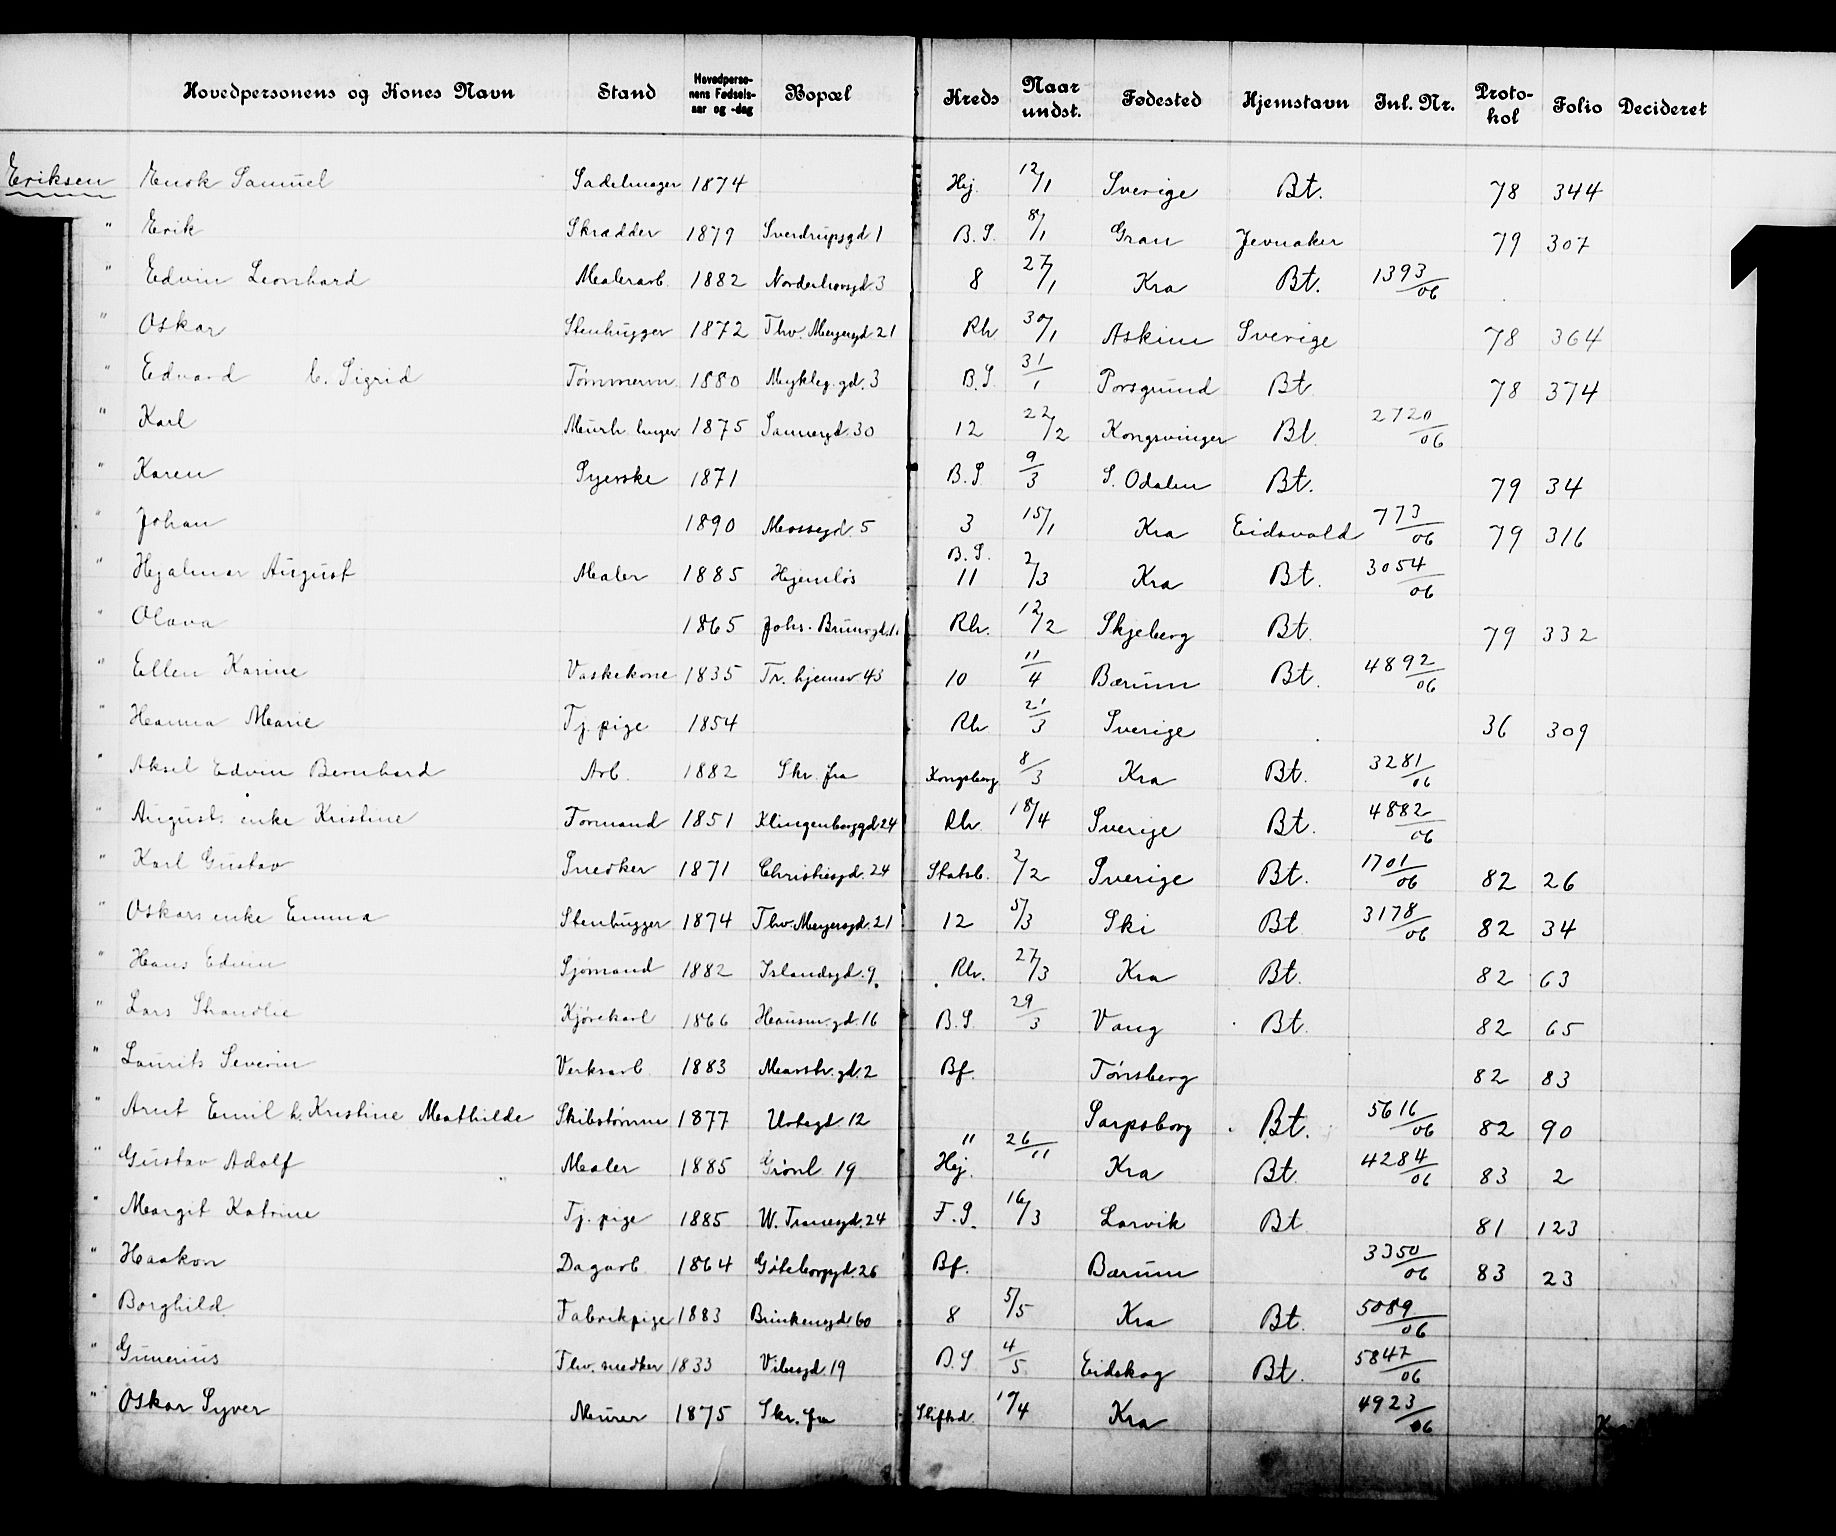 Hovedpersonens og Kones Navn Stand Hovedperso-nens Fødsels-aar og -dag Bopæl Kreds Naar undst. Fødested Hjemstavn Inl. Nr. Proto-kol Folio Decideret
Eriksen Enok Samuel Sadelmager 1874 Hej. 12/1 Sverige Bt. 78 344
" Erik Skrædder 1879 Sverdrupsgd 1 B.S. 8/1 Gran Jevnaker 79 307
" Edvin Leonhard Malerarb. 1882 Norderhovsgd. 3 8 27/1 Kra Bt. 1393/06
" Oskar Stenhugger 1872 Thv. Meyersgd 21 Rh 30/1 Askim Sverige 78 364
" Edvard h. Sigrid Tømmerm. 1880 Mykleg.gd. 3 B.S. 31/1 Porsgrund Bt. 78 374
" Karl Murh. 1875 Sannergd. 30 12 22/2 Kongsvinger Bt. 2720/06
" Karen Syerske 1871 B.S. 9/3 S. Odalen Bt. 79 34
" Johan 1890 Mossegd. 5 3 15/1 Kra Eidsvold 773/06 79 316
" Hjalmar August Maler 1885 Hjemløs B.S. 11 2/3 Kra Bt. 3054/06
" Olava 1865 Johs. Brunsgd. Rh. 12/2 Skjeberg Bt. 79 332
" Ellen Karine Vaskekone 1835 Tr.hjemsv. 43 10 11/4 Bærum Bt. 4892/06
" Hanna Marie Tj.pige 1854 Rh 21/3 Sverige 36 309
" Aksel Edvin Bernhard Arb. 1882 Skr. fra Kongsberg 8/3 Kra Bt. 3281/06
" August. enke Kristine Formand 1851 Klingenborggd 24 Rh. 18/4 Sverige Bt. 4882/06
" Karl Gustav Snedker 1871 Christiesgd. 24 Statsb. 2/2 Sverige Bt. 1701/06 82 26
" Oskars enke Emma Stenhugger 1874 Thv. Meyersgd. 21 12 5/3 Ski Bt. 3178/06 82 34
" Hans Edvin Sjømand 1882 Islandsgd. 9. Rh. 27/3 Kra Bt. 82 63
" Lars Strandlie Kjørekarl 1866 Hausm.gd. 16 B.S. 29/3 Vang Bt. 82 65
" Laurits Severin Verksarb. 1883 Marstr.gd. 2 Bf. Tønsberg 82 83
" Arnt Emil h. Kristine Mathilde Skibstømm 1877 Urtegd. 12 11 26/11 Sarpsborg Bt. 5616/06 82 90
" Gustav Adolf Maler 1885 Grønl. 19 Hej. Kra Bt. 4284/06 83 2
" Margit Katrine Tj.pige 1885 W. Tranesgd. 24 F.S. 16/3 Larvik Bt. 81 123
" Haakon Dagarb. 1864 Gøteborggd. 26 Bf. Bærum 3350/06 83 23
" Borghild Fabrikpige 1883 Brinkensgd. 60 8 5/5 Kra Bt. 5089/06
" Gunerius Fhv. snedker 1833 Vibesgd. 19 B.S. 4/5 Eidskog Bt. 5847/06
" Oskar Syver Murer 1875 Skr. fra Stiftsd. 19/4 Kra 4923/06